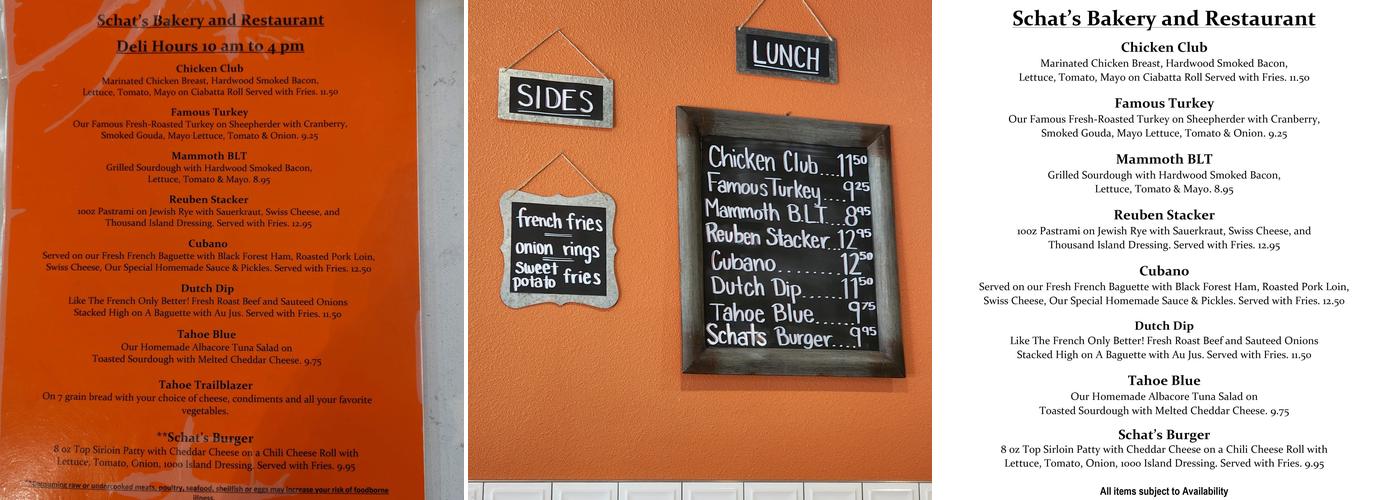 Schat's Bakery and Restaurant
Deli Hours 10 am to 4 pm
Chicken Club
Marinated Chicken Breast, Hardwood Smoked Bacon,
Lettuce, Tomato, Mayo on Ciabatta Roll Served with Fries. 11.50
Famous Turkey
Our Famous Fresh-Roasted Turkey on Sheepherder with Cranberry,
Smoked Gouda, Mayo Lettuce, Tomato & Onion. 9.25
Mammoth BLT
Grilled Sourdough with Hardwood Smoked Bacon,
Lettuce, Tomato & Mayo. 8.95
Reuben Stacker
10oz Pastrami on Jewish Rye with Sauerkraut, Swiss Cheese, and
Thousand Island Dressing. Served with Fries. 12.95
Cubano
Served on our Fresh French Baguette with Black Forest Ham, Roasted Pork Loin,
Swiss Cheese, Our Special Homemade Sauce & Pickles. Served with Fries. 12.50
Dutch Dip
Like The French Only Better! Fresh Roast Beef and Sauteed Onions
Stacked High on A Baguette with Au Jus. Served with Fries. 11.50
Tahoe Blue
Our Homemade Albacore Tuna Salad on
Toasted Sourdough with Melted Cheddar Cheese. 9.75
Tahoe Trailblazer
On 7 grain bread with your choice of cheese, condiments and all your favorite
vegetables.
**Schat's Burger
8 oz Top Sirloin Patty with Cheddar Cheese on a Chili Cheese Roll with
Lettuce, Tomato, Onion, 1000 Island Dressing. Served with Fries. 9.95
**Consuming raw or undercooked meats, poultry, seafood, shellfish or eggs may increase your risk of foodborne
illness.
SIDES
french fries
onion rings
sweet potato fries
LUNCH
Chicken Club....11.50
Famous Turkey 9.25
Mammoth B.L.T. 8.95
Reuben Stacker..12.95
Cubano........12.50
Dutch Dip.....11.50
Tahoe Blue....9.75
Schats Burger....9.95
Schat's Bakery and Restaurant
Chicken Club
Marinated Chicken Breast, Hardwood Smoked Bacon,
Lettuce, Tomato, Mayo on Ciabatta Roll Served with Fries. 11.50
Famous Turkey
Our Famous Fresh-Roasted Turkey on Sheepherder with Cranberry,
Smoked Gouda, Mayo Lettuce, Tomato & Onion. 9.25
Mammoth BLT
Grilled Sourdough with Hardwood Smoked Bacon,
Lettuce, Tomato & Mayo. 8.95
Reuben Stacker
10oz Pastrami on Jewish Rye with Sauerkraut, Swiss Cheese, and
Thousand Island Dressing. Served with Fries. 12.95
Cubano
Served on our Fresh French Baguette with Black Forest Ham, Roasted Pork Loin,
Swiss Cheese, Our Special Homemade Sauce & Pickles. Served with Fries. 12.50
Dutch Dip
Like The French Only Better! Fresh Roast Beef and Sauteed Onions
Stacked High on A Baguette with Au Jus. Served with Fries. 11.50
Tahoe Blue
Our Homemade Albacore Tuna Salad on
Toasted Sourdough with Melted Cheddar Cheese. 9.75
Schat's Burger
8 oz Top Sirloin Patty with Cheddar Cheese on a Chili Cheese Roll with
Lettuce, Tomato, Onion, 1000 Island Dressing. Served with Fries. 9.95
All items subject to Availability